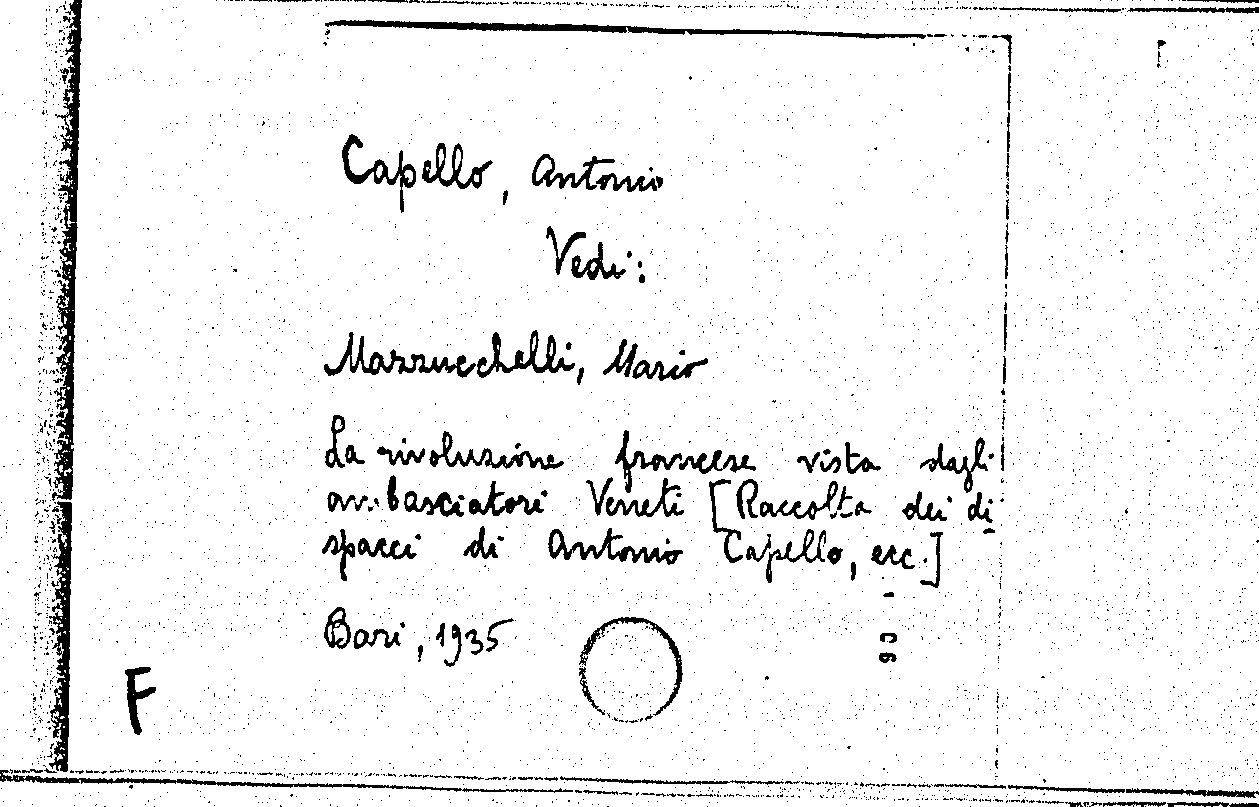 Capello, Antonio
Vedi:
Mazzucchelli, Mario
La rivoluzione francese vista dagli
ambasciatori Veneti [Raccolta dei di
spacci di Antonio Capello, ecc.]
Bari, 1935
F